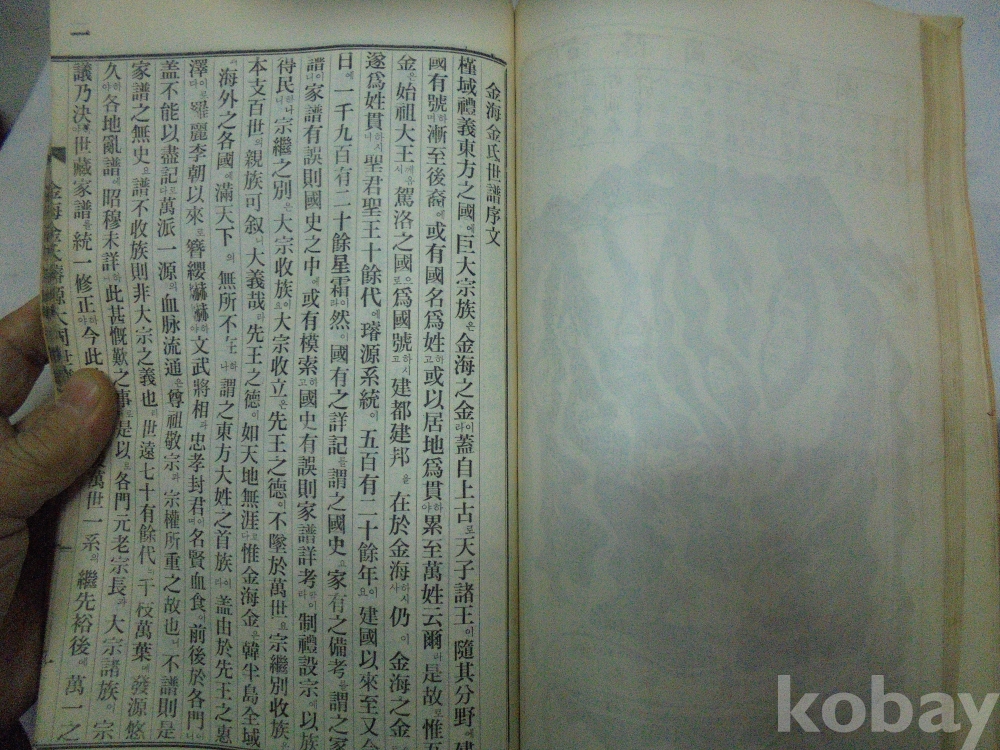 金海金氏世譜序文
槿域禮義東方之國에巨大宗族은金海之金이라蓋自上古로天子諸王이隨其分野에建
國有號하며漸至後裔에或有國名爲姓하고或以居地爲貫하야累至萬姓云爾라是故로惟
金은始祖大王께옵서駕洛之國으로爲國號하시고建都建邦을在於金海하시사仍이金海之金
遂爲姓貫하시나聖君聖王十餘代에璿源系統이五百有二十餘年이요建國以來至又今
日에一千九百有二十餘星霜이라然이國有之詳記를謂之國史요家有之備考를謂之家
譜이니家譜有誤則國史之中에或有模索하고國史有誤則家譜詳考만이라制禮設宗에以族
待民하나니宗繼之別은大宗收族이요大宗收立은先王之德이不墜於萬世요宗繼別收族은
本支百世의親族可叙니大義哉라先王之德이如天地無涯요惟金海金은韓半島全域
海外之各國에滿天下의無所不在하나謂之東方大姓之首族이라蓋由於先王之惠
澤이로다羅麗李朝以來로簪纓赫赫하야文武將相과忠孝封君이며名賢血食이前後於各門이니
盖不能以盡記로다萬派一源의血脉流通은尊祖敬宗과宗權所重之故也요不譜則是
家譜之無史요譜不收族則非大宗之義也라世遠七十有餘代의千枝萬葉에發源悠
久하야各地亂譜에昭穆未詳하니此甚慨歎之事로是以로各門元老宗長과大宗諸族이宗
議乃決하야世藏家譜를統一修正하야今此
萬世一系의繼先裕後에萬一之
金海金
一
kobay